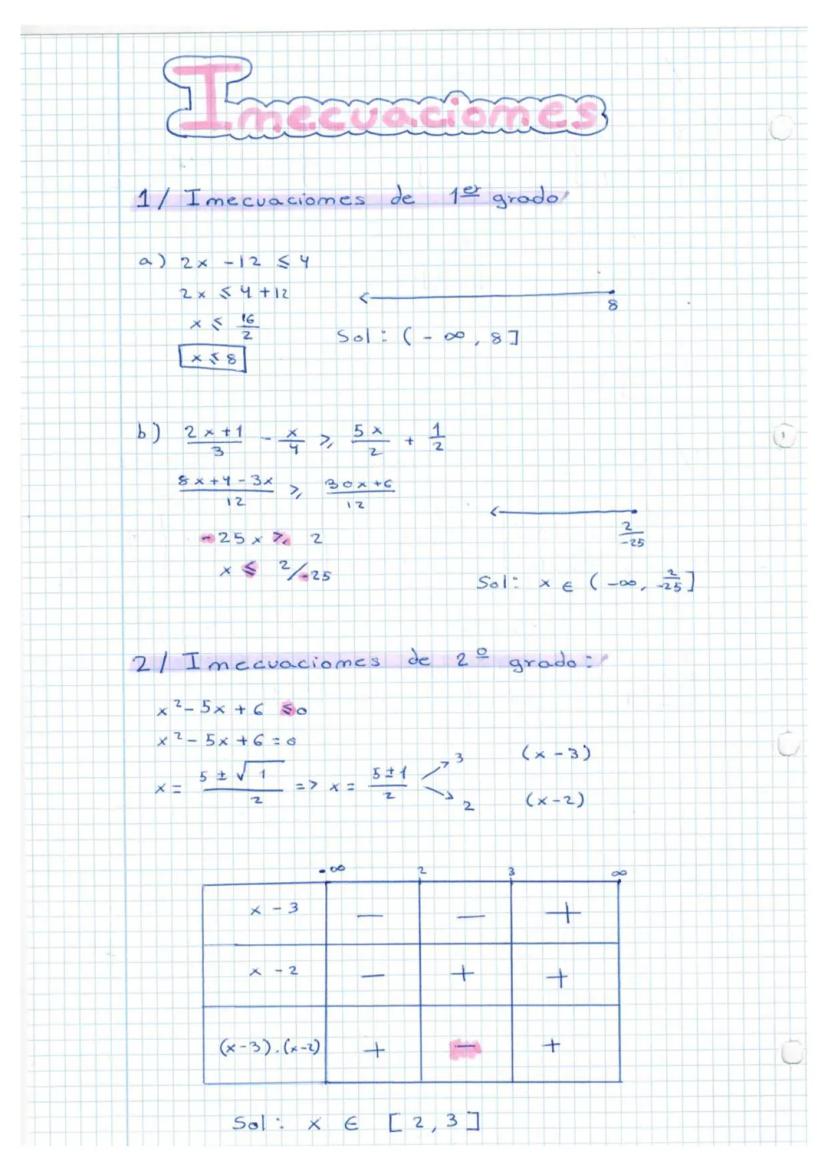 Inecuaciones
1/ Inecuaciones de 1er grado/
a) 2x -12 ≤ 4
2x ≤ 4 +12
x ≤ 16/2
x ≤ 8
8
Sol: (-∞, 8]
b) (2x+1)/3 - x/4 ≥ 5x/2 + 1/2
(8x+4-3x)/12 ≥ (30x+6)/12
-25x ≥ 2
x ≤ 2/-25
2/-25
Sol: x ∈ (-∞, 2/-25]
2/ Inecuaciones de 2º grado:/
x² - 5x + 6 ≤ 0
x² - 5x + 6 = 0
x = (5 ± √1)/2 => x = (5±1)/2 → 3 (x-3)
→ 2 (x-2)
-∞ 2 3 ∞
x - 3 — — +
x - 2 — + +
(x-3).(x-2) + — +
Sol: x ∈ [2,3]